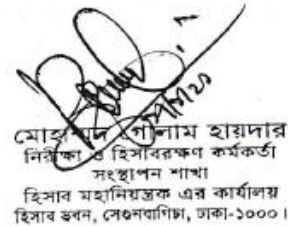 মোহাম্মদ গোলাম হায়দার
নিরীক্ষা ও হিসাবরক্ষণ কর্মকর্তা
সংস্থাপন শাখা
হিসাব মহানিয়ন্ত্রক এর কার্যালয়
হিসাব ভবন, সেগুনবাগিচা, ঢাকা-১০০০।